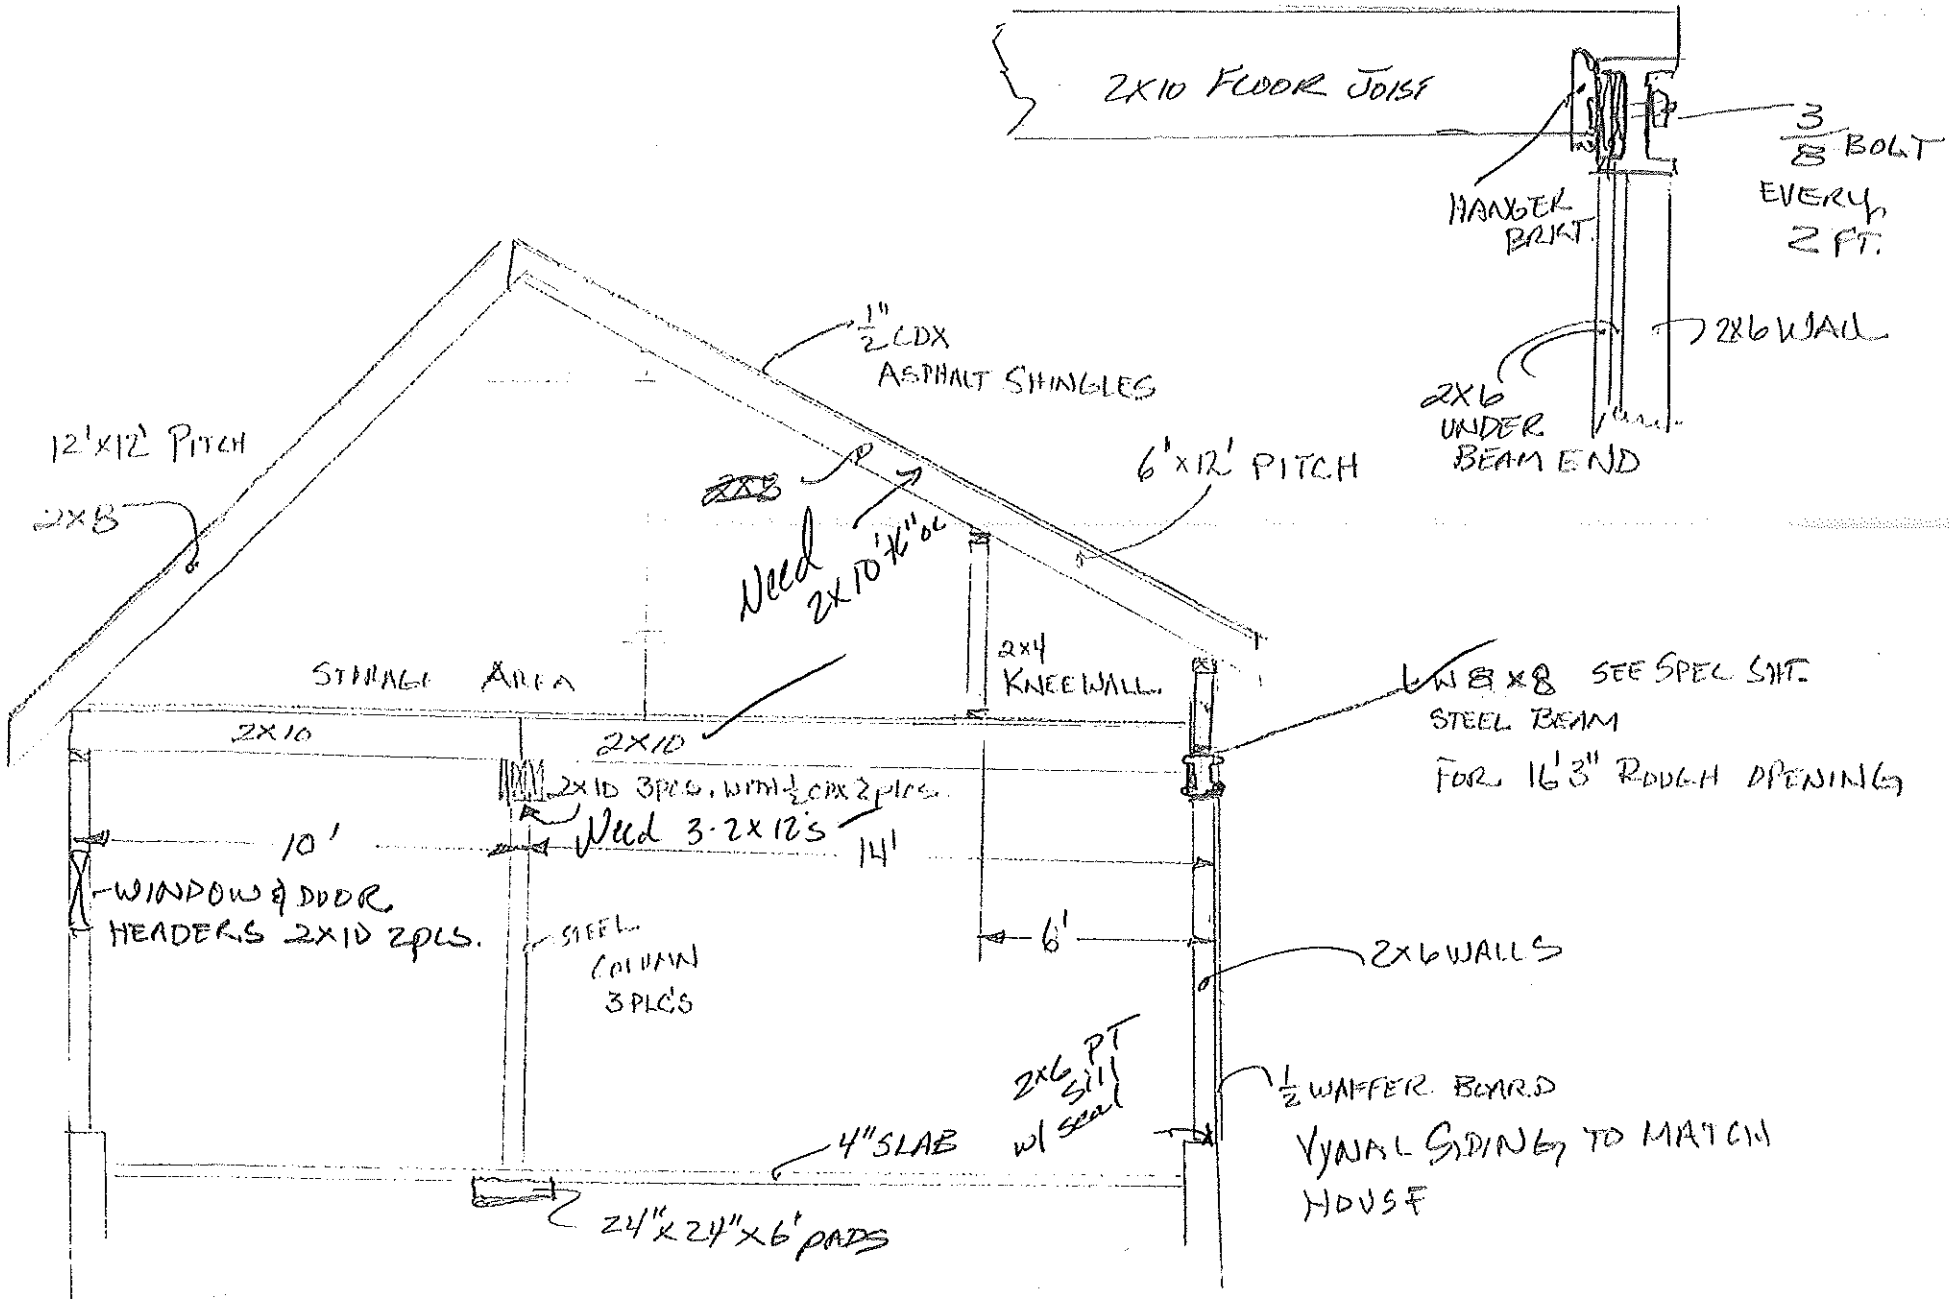 2X10 FLOOR JOIST
3/8 BOLT
EVERY
2 FT.
HANGER
BRKT.
2X6 WALL
2X6
UNDER
BEAM END
1/2" CDX
ASPHALT SHINGLES
12'X12' PITCH
2X8
2X8
Need
2X10 16" oc
6"X12' PITCH
STORAGE AREA
2X4
KNEEWALL.
W 8 X 8 SEE SPEC SHT.
STEEL BEAM
FOR 16'3" ROUGH OPENING
2X10
2X10
2X10 3PCS. WITH 1/2 CDX 2 plcs.
Need 3-2X12's
10'
14'
WINDOW & DOOR
HEADERS 2X10 2pcs.
STEEL
COLUMN
3 PLC'S
6'
2X6 WALLS
2X6 PT
Sill
w/ seal
1/2 WAFFER BOARD
VYNAL SIDING TO MATCH
HOUSE
4" SLAB
24"X24"X6' PADS